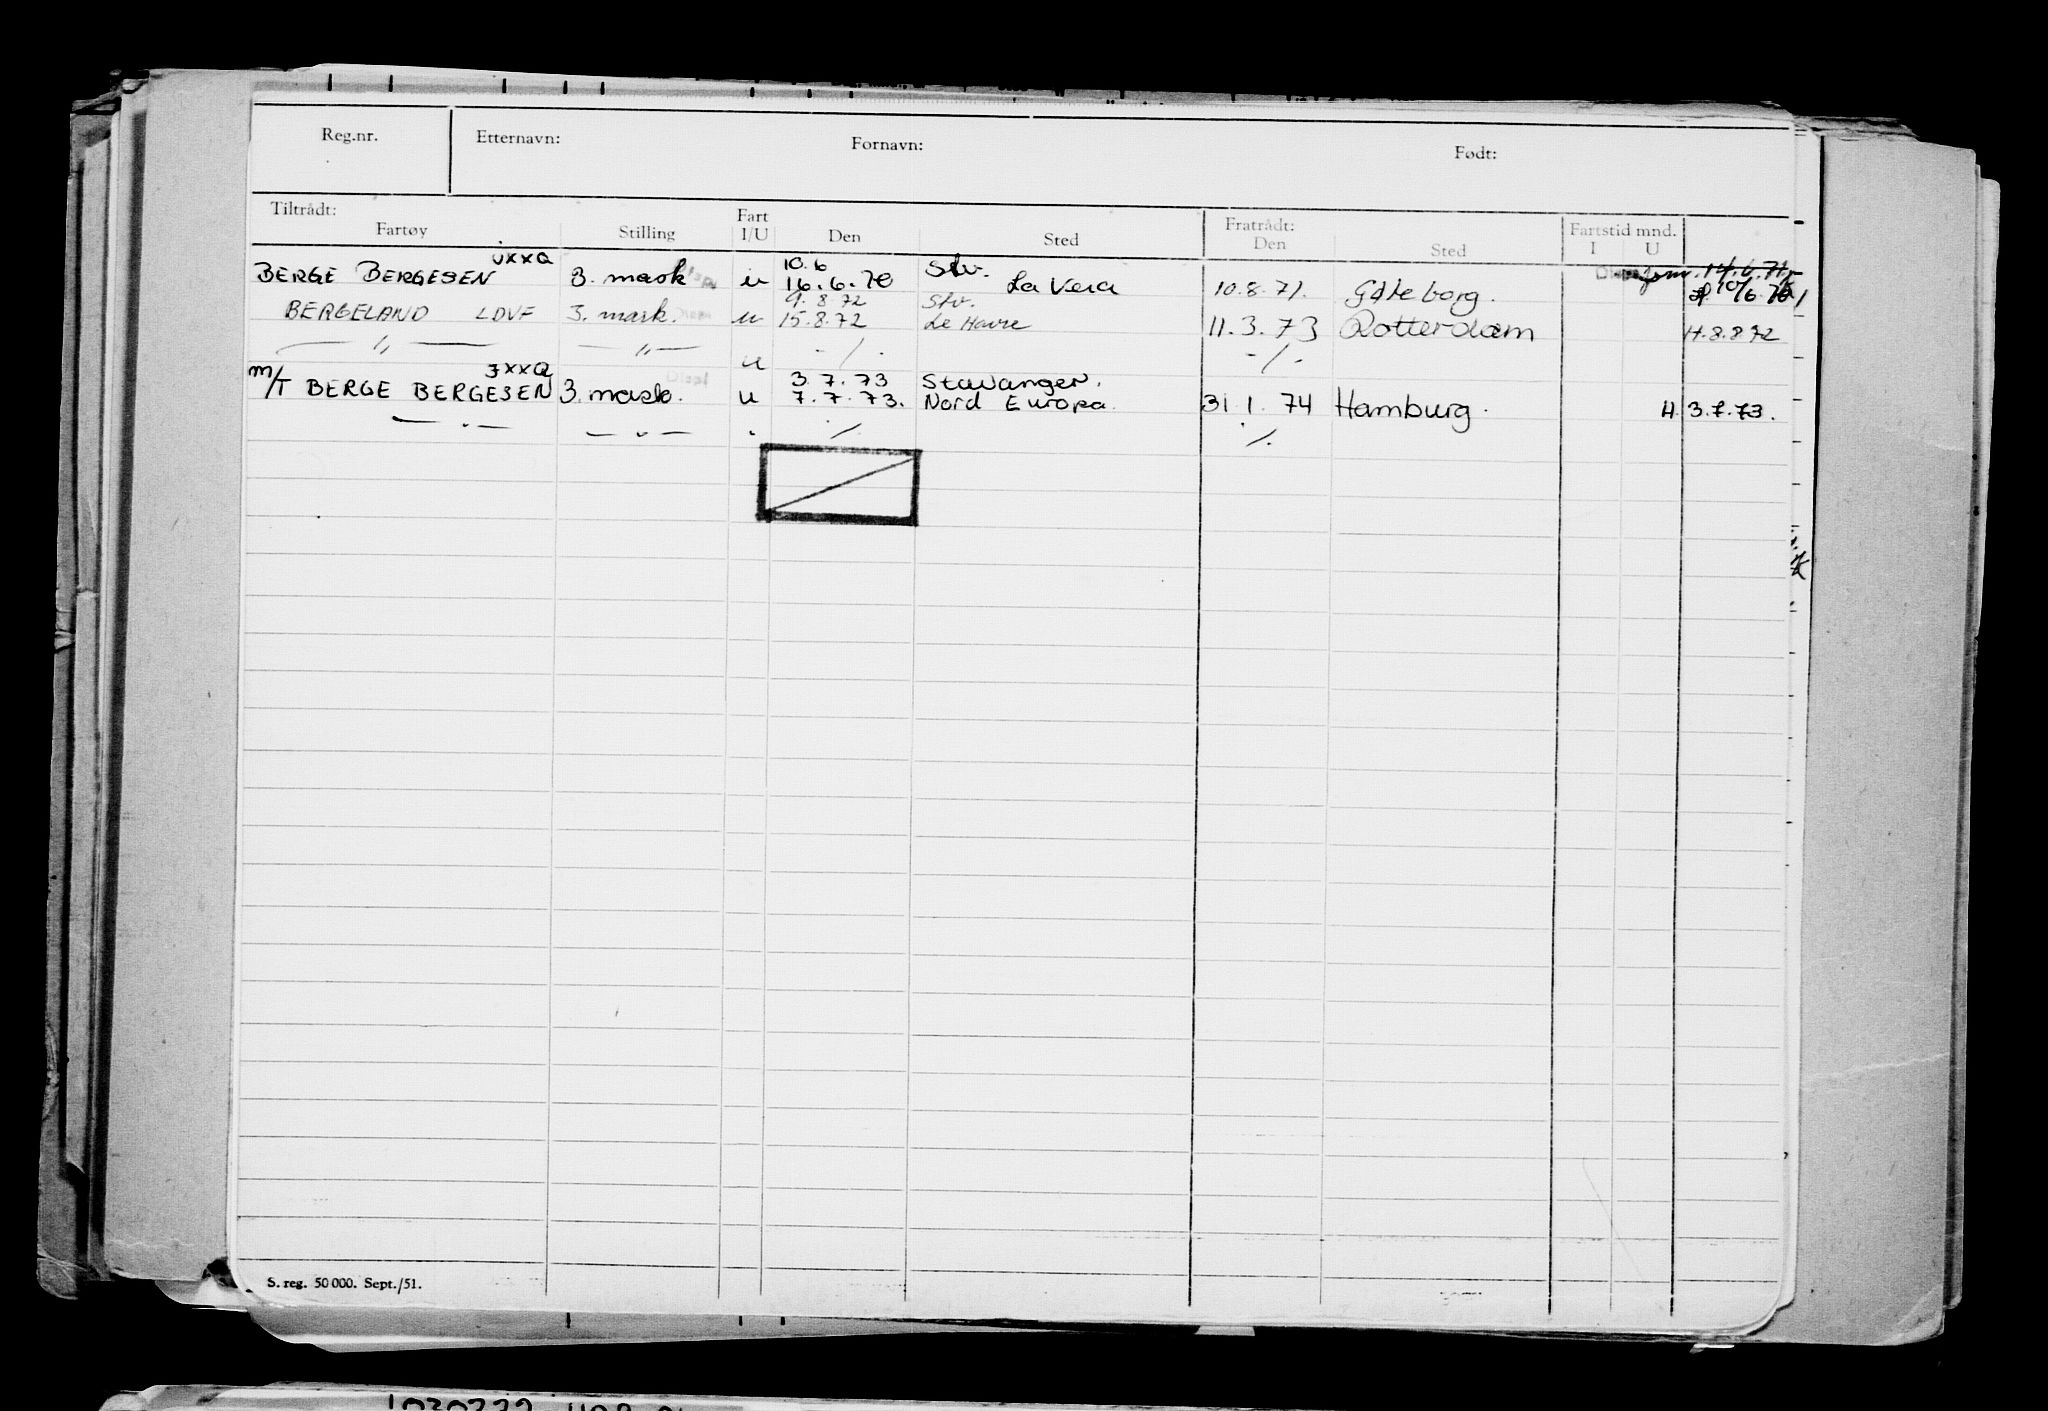 Reg.nr. Etternavn: Fornavn: Født:
Tiltrådt: Fart Fratrådt: Fartstid mnd.
Fartøy Stilling I/U Den Sted Den Sted I U
JXXQ 10.6 Stv. 14.6.71
BERGE BERGESEN 3. mask u 16.6.70 La Vera 10.8.71. Gøteborg. 10/6.70
9.8.72 Stv.
BERGELAND LDVF 3. mask. u 15.8.72 Le Havre 11.3.73 Rotterdam H.8.8 72
— " — — " — u - / - - / -
JXXQ 3.7.73 Stavanger.
M/T BERGE BERGESEN 3. mask. u 7.7.73. Nord Europa. 31.1.74 Hamburg. H. 3.7.73.
— " — — " — " ·/· ·/·
S. reg. 50 000. Sept./51.